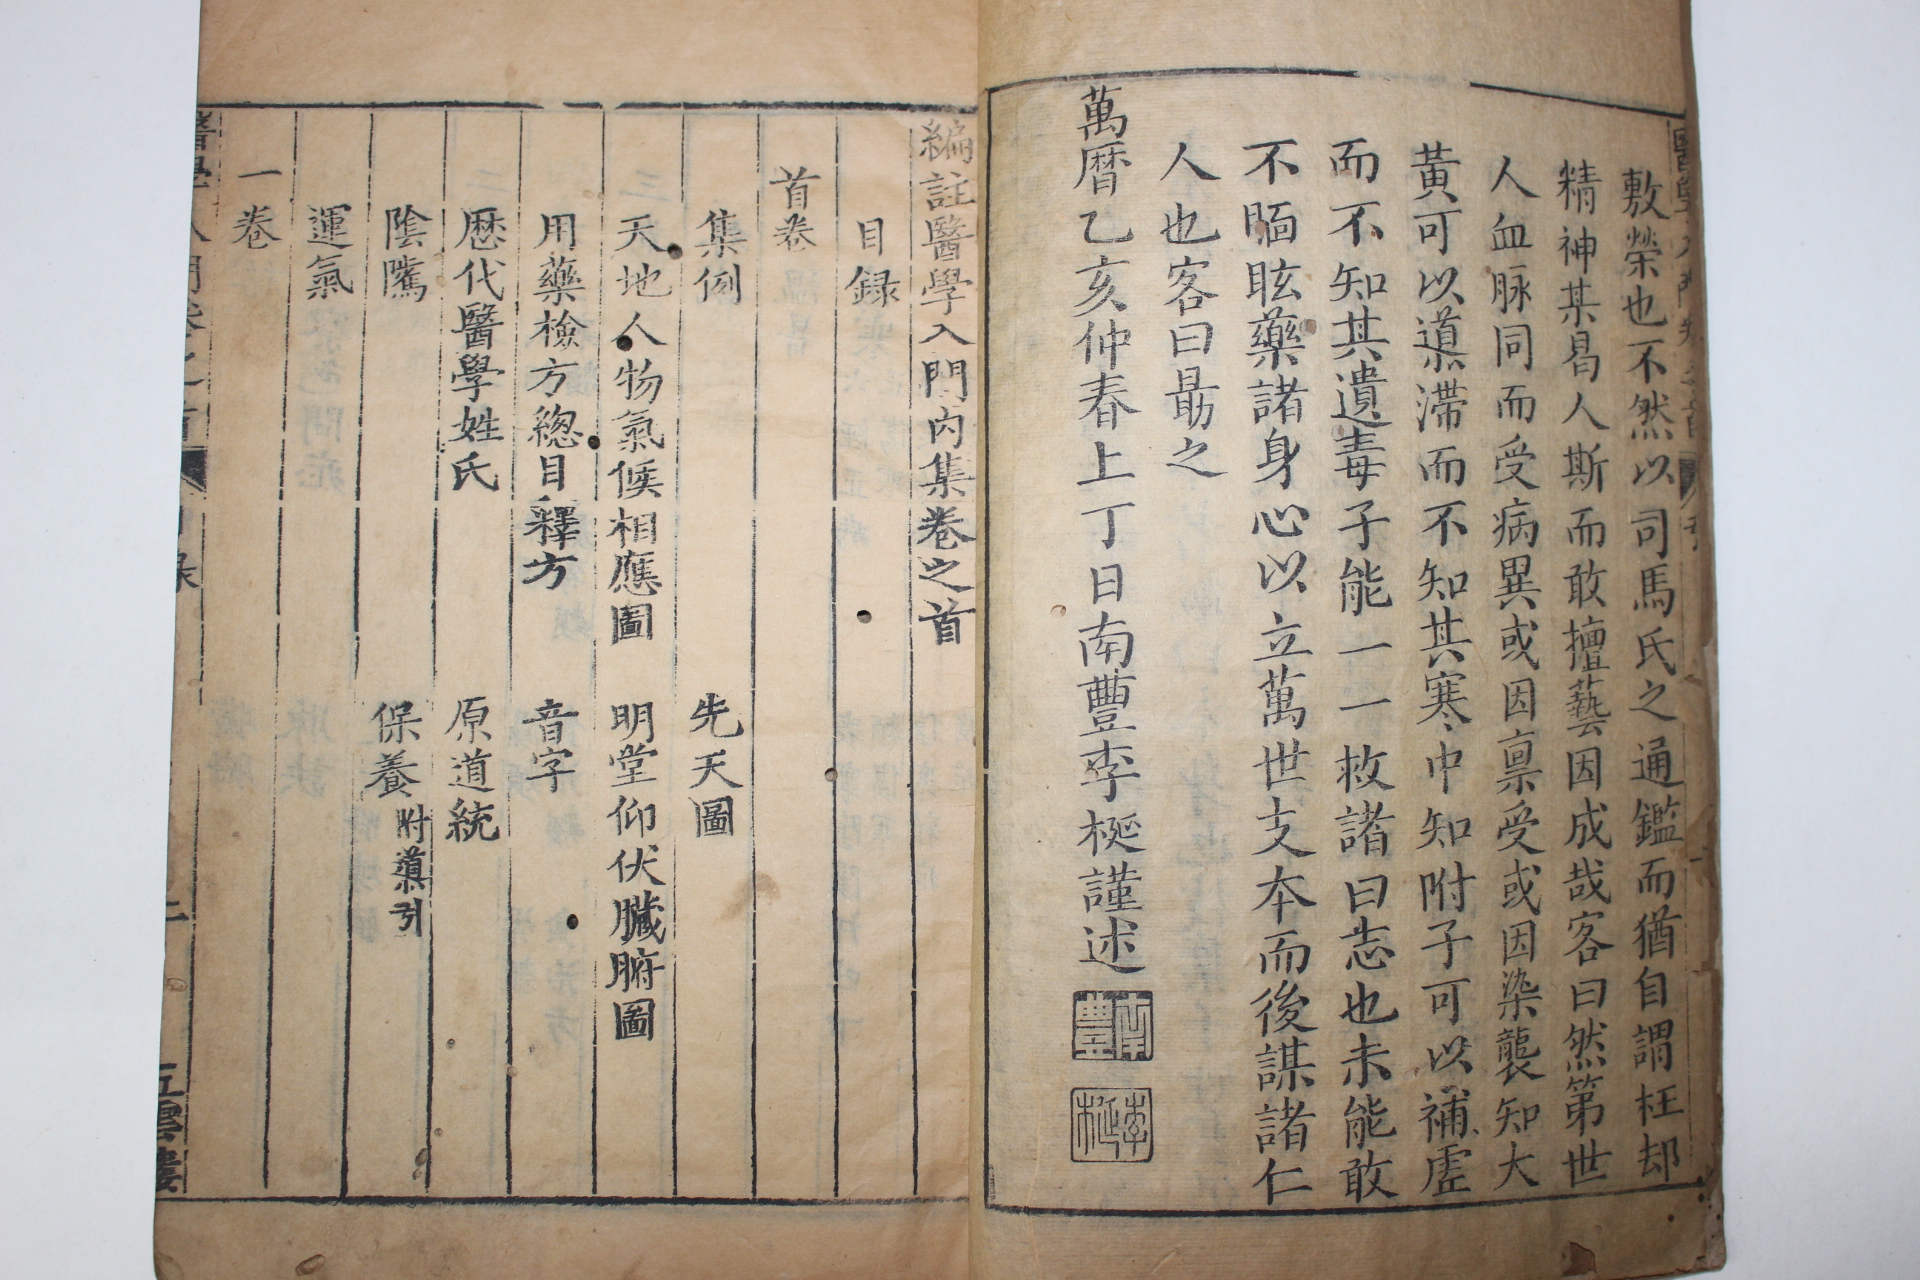 敷榮也不然以司馬氏之通鑑而猶自謂枉却
精神某曷人斯而敢擅藝因成哉客曰然第世
人血脉同而受病異或因禀受或因染襲知大
黃可以導滯而不知其寒中知附子可以補虛
而不知其遺毒子能一一救諸曰志也未能敢
不瞑眩藥諸身心以立萬世支本而後謀諸仁
人也客曰勗之
萬曆乙亥仲春上丁日南豐李梴謹述
南豐
李梴
編註醫學入門內集卷之首
目録
首卷
集例 先天圖
天地人物氣候相應圖 明堂仰伏臟腑圖
用藥檢方總目釋方 音字
歷代醫學姓氏 原道統
陰騭 保養附導引
運氣
一卷
醫學入門卷之首 目録
五雲樓